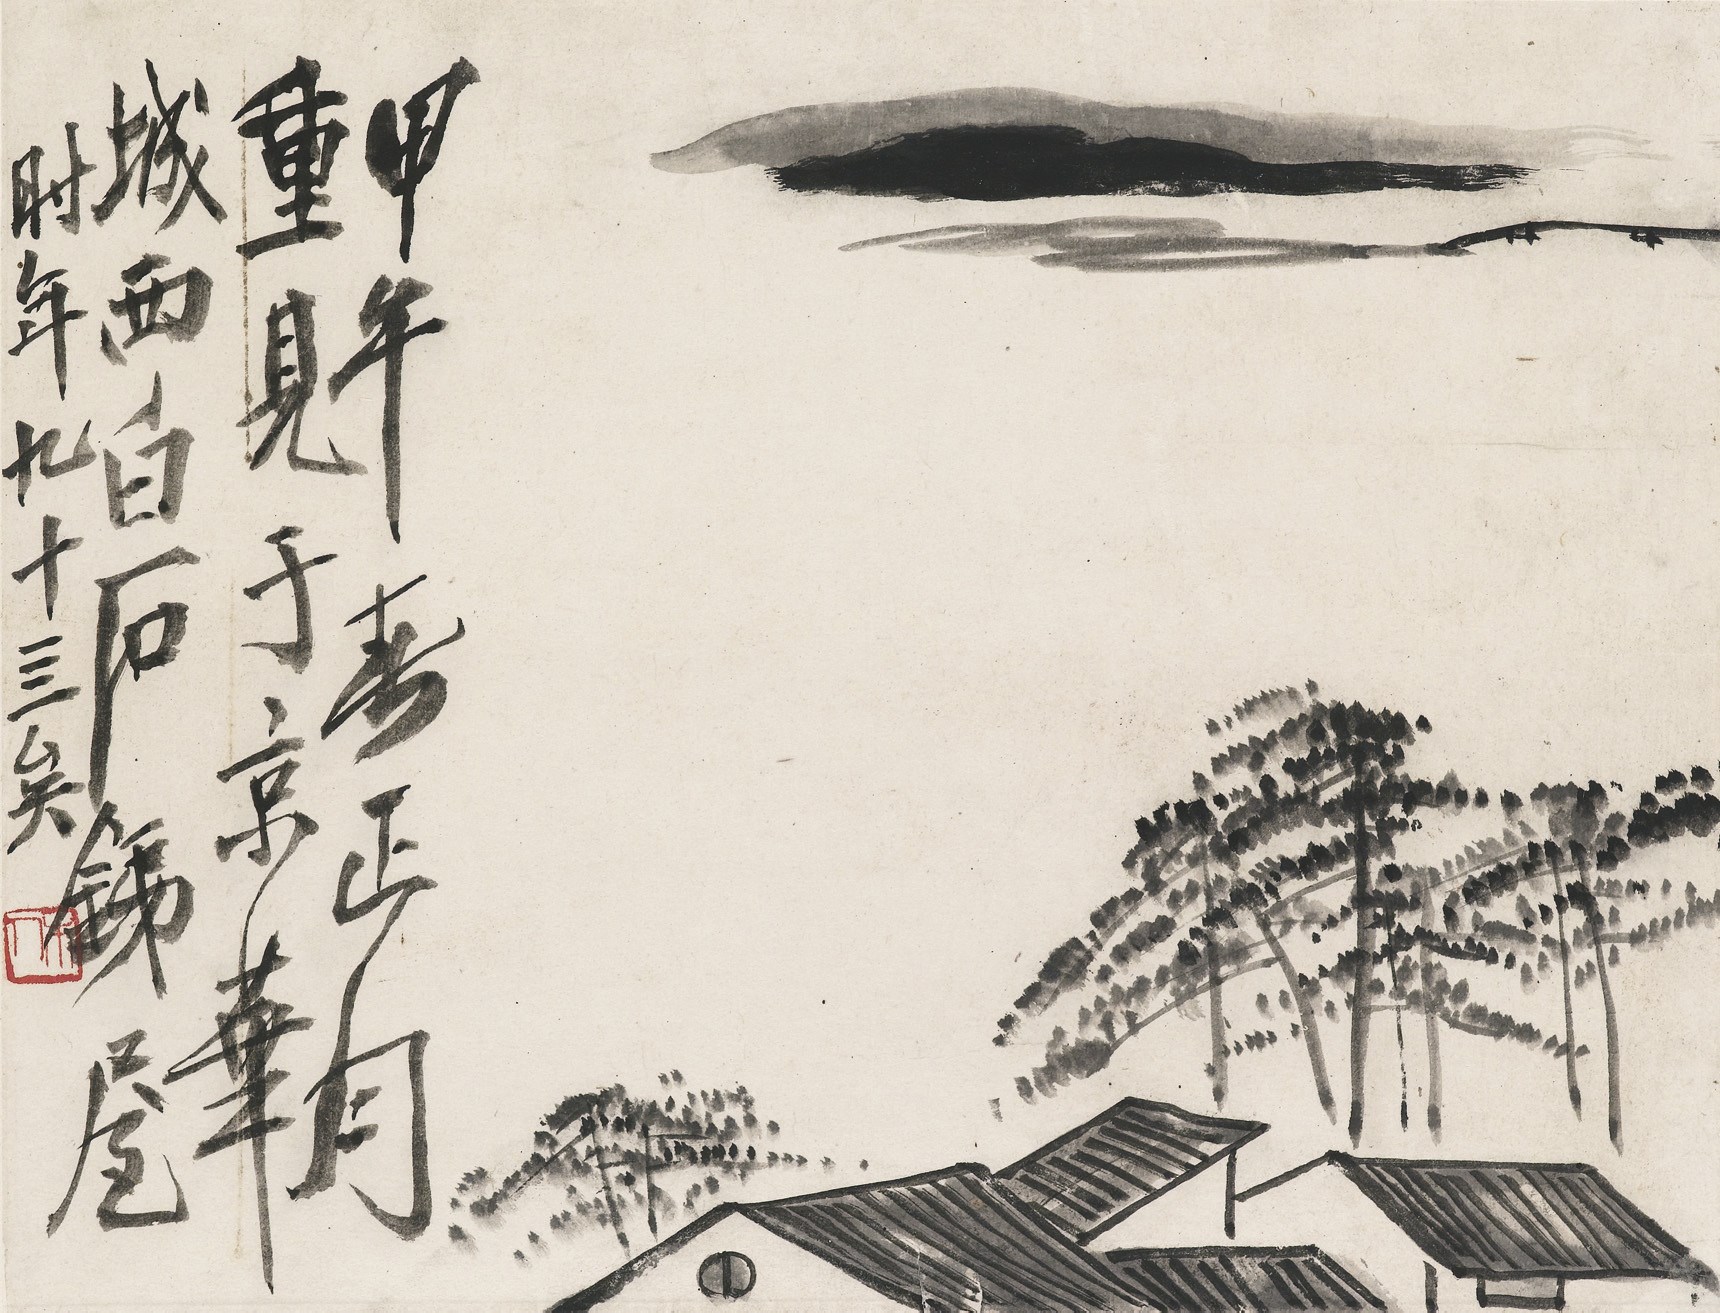 甲午春正月
重見于京華
城西白石鐵屋
时年九十三矣